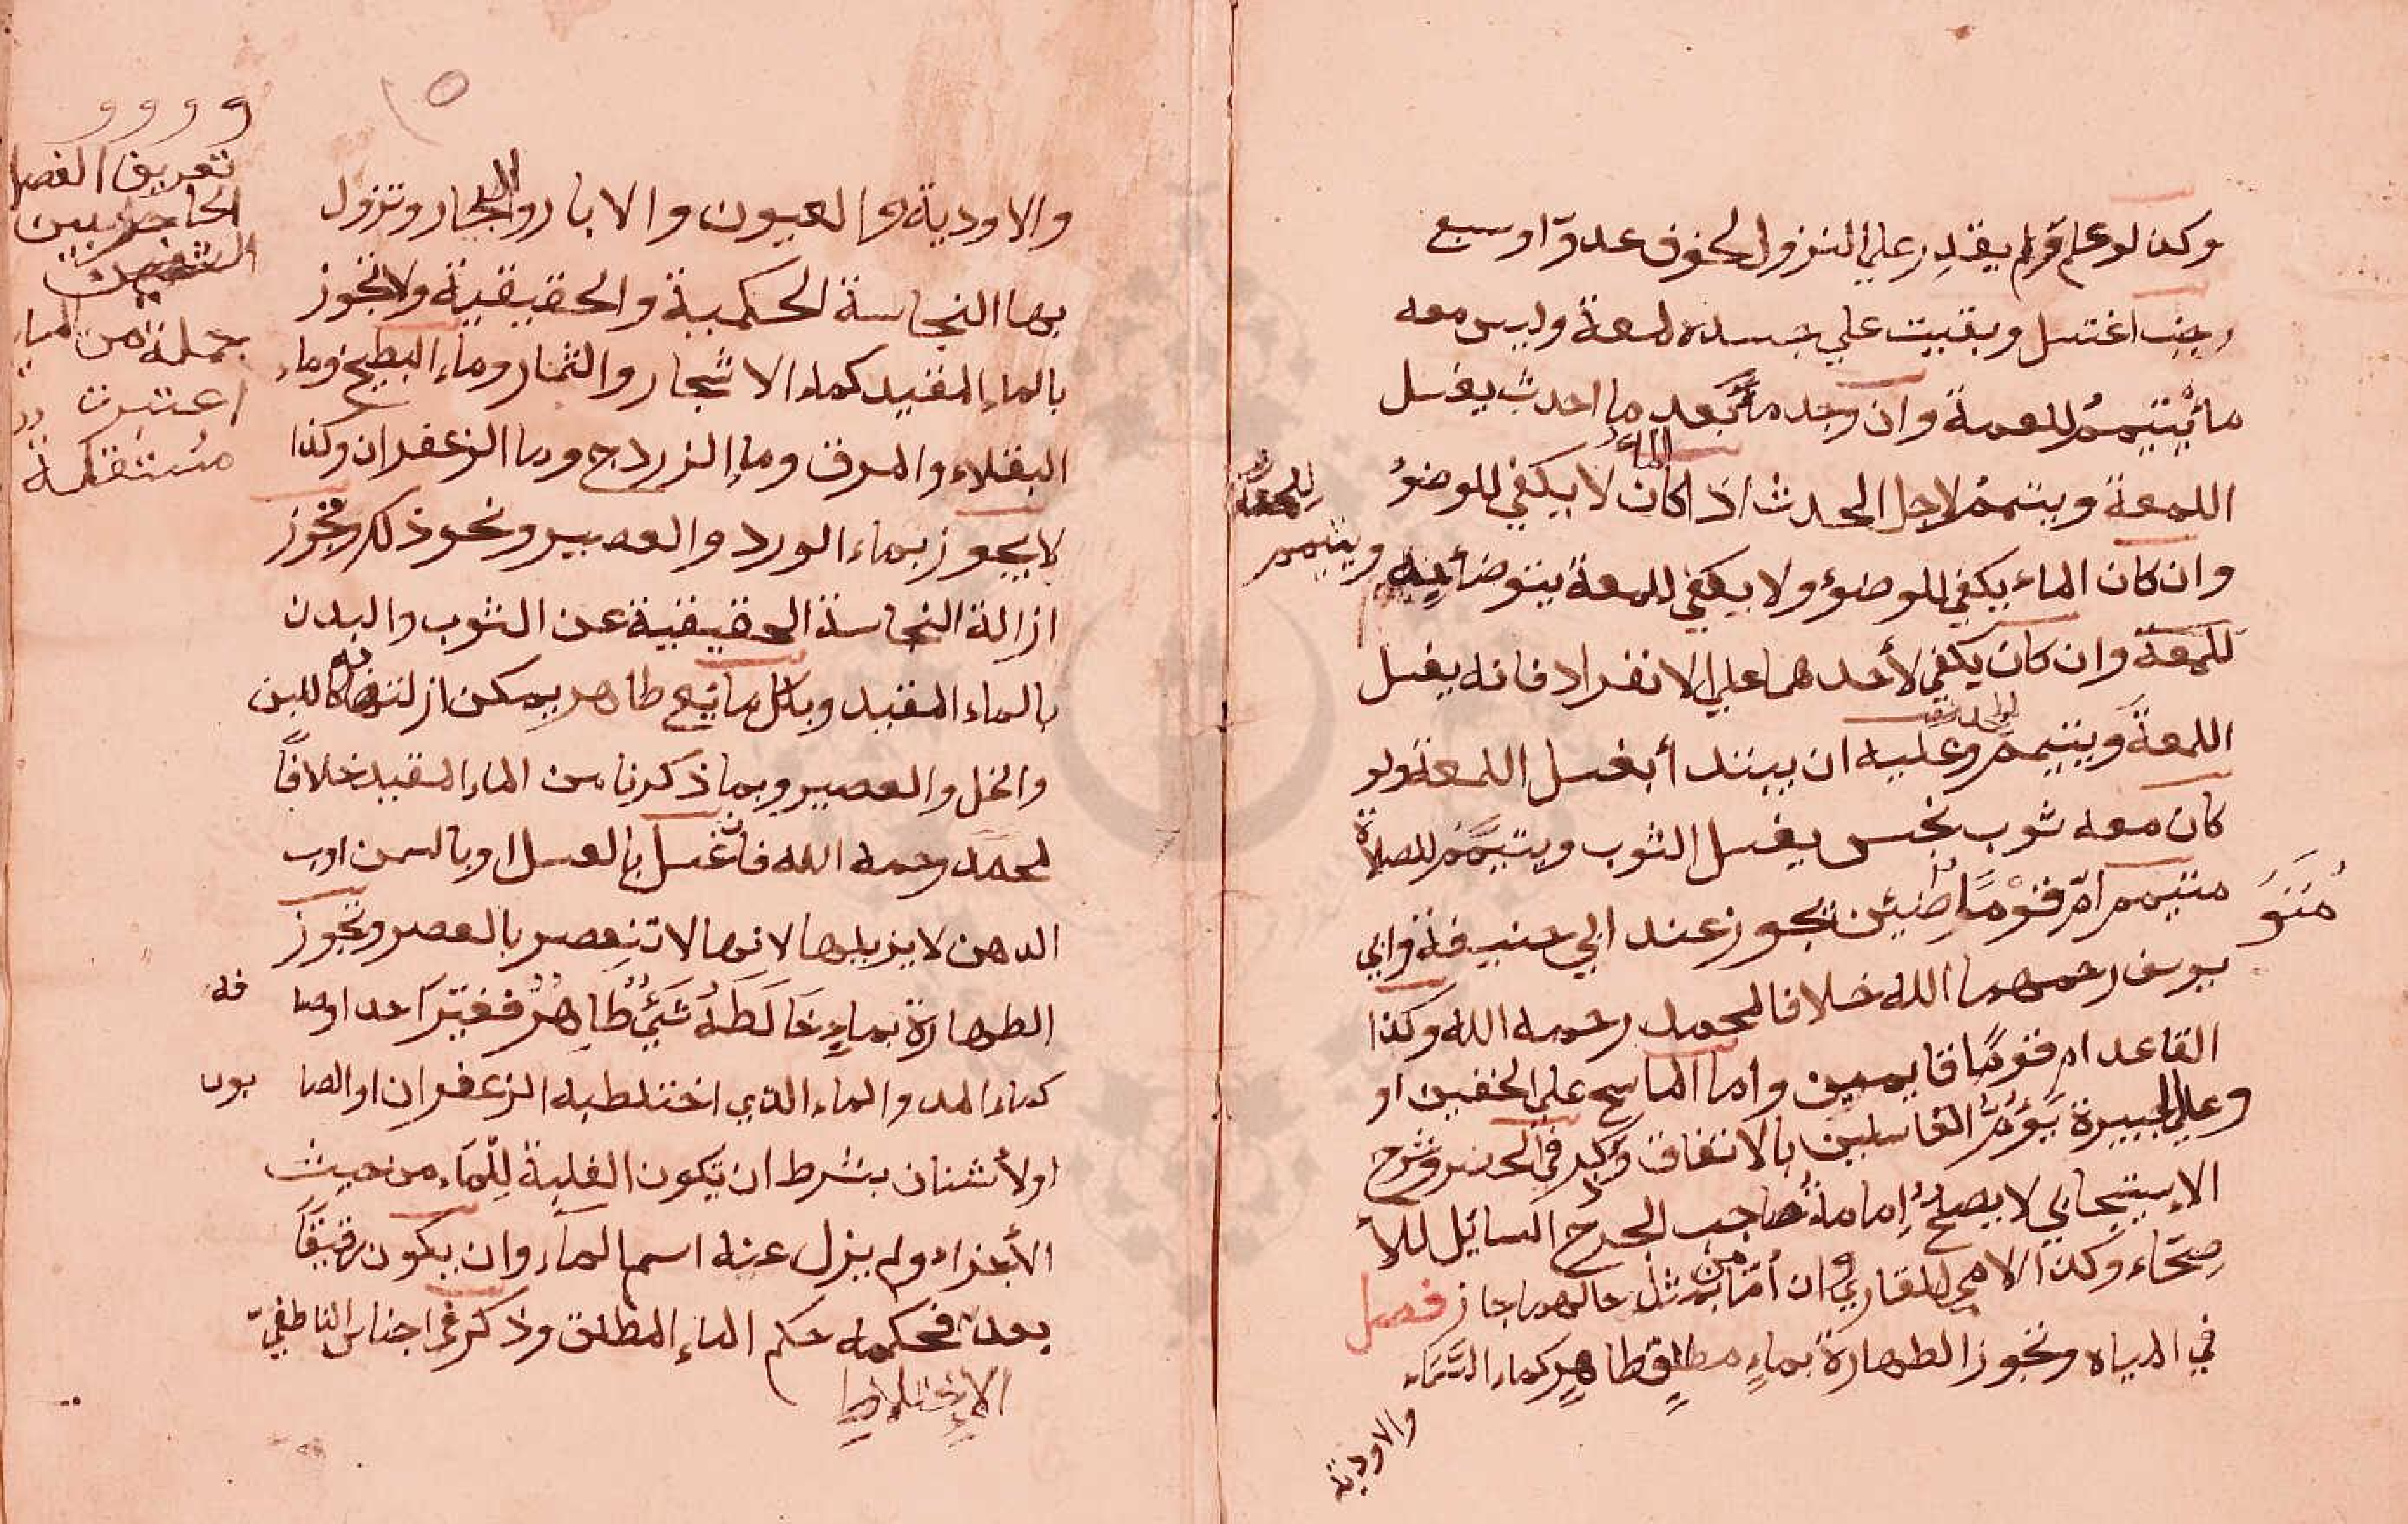 وكذا لو علم ولم يقدر علي النزول لخوف عدوّ او سبع
جنب اغتسل وبقيت علي جسده لمعة وليس معه
ماء يتيمم للمعة وان وجد ماء بعد ما احدث يغسل
اللمعة ويتيمم لاجل الحدث اذا كان الماء لا يكفي للوضوء
وان كان الماء يكفي للوضوء ولا يكفي للمعة يتوضأ به ويتيمم
للمعة
للمعة وان كان يكفي لأحدهما علي الانفراد فانه يغسل
اللمعة ويتيمم وعليه ان يبتدأ بغسل اللمعة ولو
كان معه ثوب نجس يغسل الثوب ويتيمم للصلاة
متيمم امّ قومًا متوضئين يجوز عند ابي حنيفة وابي
يوسف رحمهما الله خلافا لمحمد رحمه الله وكذا
القاعد ام قومًا قايمين واما الماسح علي الخفين او
وعلي الجبيرة يؤم الغاسلين بالاتفاق وذكر في شرح
الاسبيجابي لا يصلح إمامة صاحب الجرح السائل للأ
صحّاء وكذا الامي للقاري وان أمّا من بمثل حالهما جاز فصل
في المياه وتجوز الطهارة بماءٍ مطلقٍ طاهرٍ كماء السّماء
والاودية
والاودية والعيون والابار والبحار وتزول
بها النجاسة الحكمية والحقيقية ولا تجوز
بالماء المقيد كماء الاشجار والثمار وماء البطيخ وماء
الباقلاء والمرق وماء الزردج وما الزعفران وكذا
لا يجوز بماء الورد والعصير ونحو ذلك وتجوز
ازالة النجاسة الحقيقية عن الثوب والبدن
بالماء المقيد وبكل مائع طاهر يمكن ازالتها به كاللبن
والخل والعصير وبما ذكرنا من الماء المقيد خلافًا
لمحمد رحمه الله فان غسل بالعسل او بالسمن او ب
الدهن لا يزيلها لانها لا تنعصر بالعصر وتجوز
الطهارة بماءٍ خالطه شيئٌ طاهرٌ فغيّر احد اوصا فه
كماء المد والماء الذي اختلط به الزعفران او الصا بون
او لأشنان بشرط ان تكون الغلبة للماء من حيث
الأجزاء ولم يزل عنه اسم الماء وان يكون رقيقًا
بعد فحكمه حكم الماء المطلق وذكر في اجناس الناطفيّ
الاختلاط
تعريف الفصل
الحاجز بين
الشيئين
جملة من المياه
اعتبرت
مستقلة